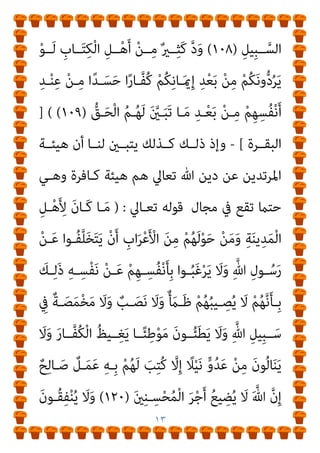 السَّبِيلِ (١٠٨) وَدَّ كَثِيرٌ مِنْ أَهْلِ الْكِتَابِ لَوْ
يَرُدُّونَكُمْ مِنْ بَعْدِ إِيمَانِكُمْ كُفَّارًا حَسَدًا مِنْ عِنْدِ
أَنْفُسِهِمْ مِنْ بَعْدِ مَا تَبَيَّنَ لَهُمُ الْحَقُّ (١٠٩) ) [
البقرة ] - وإذ ذلك كذلك يتبين لنا أن هيئة
المرتدين عن دين الله تعالي هم هيئة كافرة وهي
حتما تقع في مجال قوله تعالي : ( مَا كَانَ لِأَهْلِ
الْمَدِينَةِ وَمَنْ حَوْلَهُمْ مِنَ الْأَعْرَابِ أَنْ يَتَخَلَّفُوا عَنْ
رَسُولِ اللَّهِ وَلَا يَرْغَبُوا بِأَنْفُسِهِمْ عَنْ نَفْسِهِ ذَلِكَ
بِأَنَّهُمْ لَا يُصِيبُهُمْ ظَمَأٌ وَلَا نَصَبٌ وَلَا مَخْمَصَةٌ فِي
سَبِيلِ اللَّهِ وَلَا يَطَئُونَ مَوْطِئًا يَغِيظُ الْكُفَّارَ وَلَا
يَنَالُونَ مِنْ عَدُوٍّ نَيْلًا إِلَّا كُتِبَ لَهُمْ بِهِ عَمَلٌ صَالِحٌ
إِنَّ اللَّهَ لَا يُضِيعُ أَجْرَ الْمُحْسِنِينَ (١٢٠) وَلَا يُنْفِقُونَ
١٣